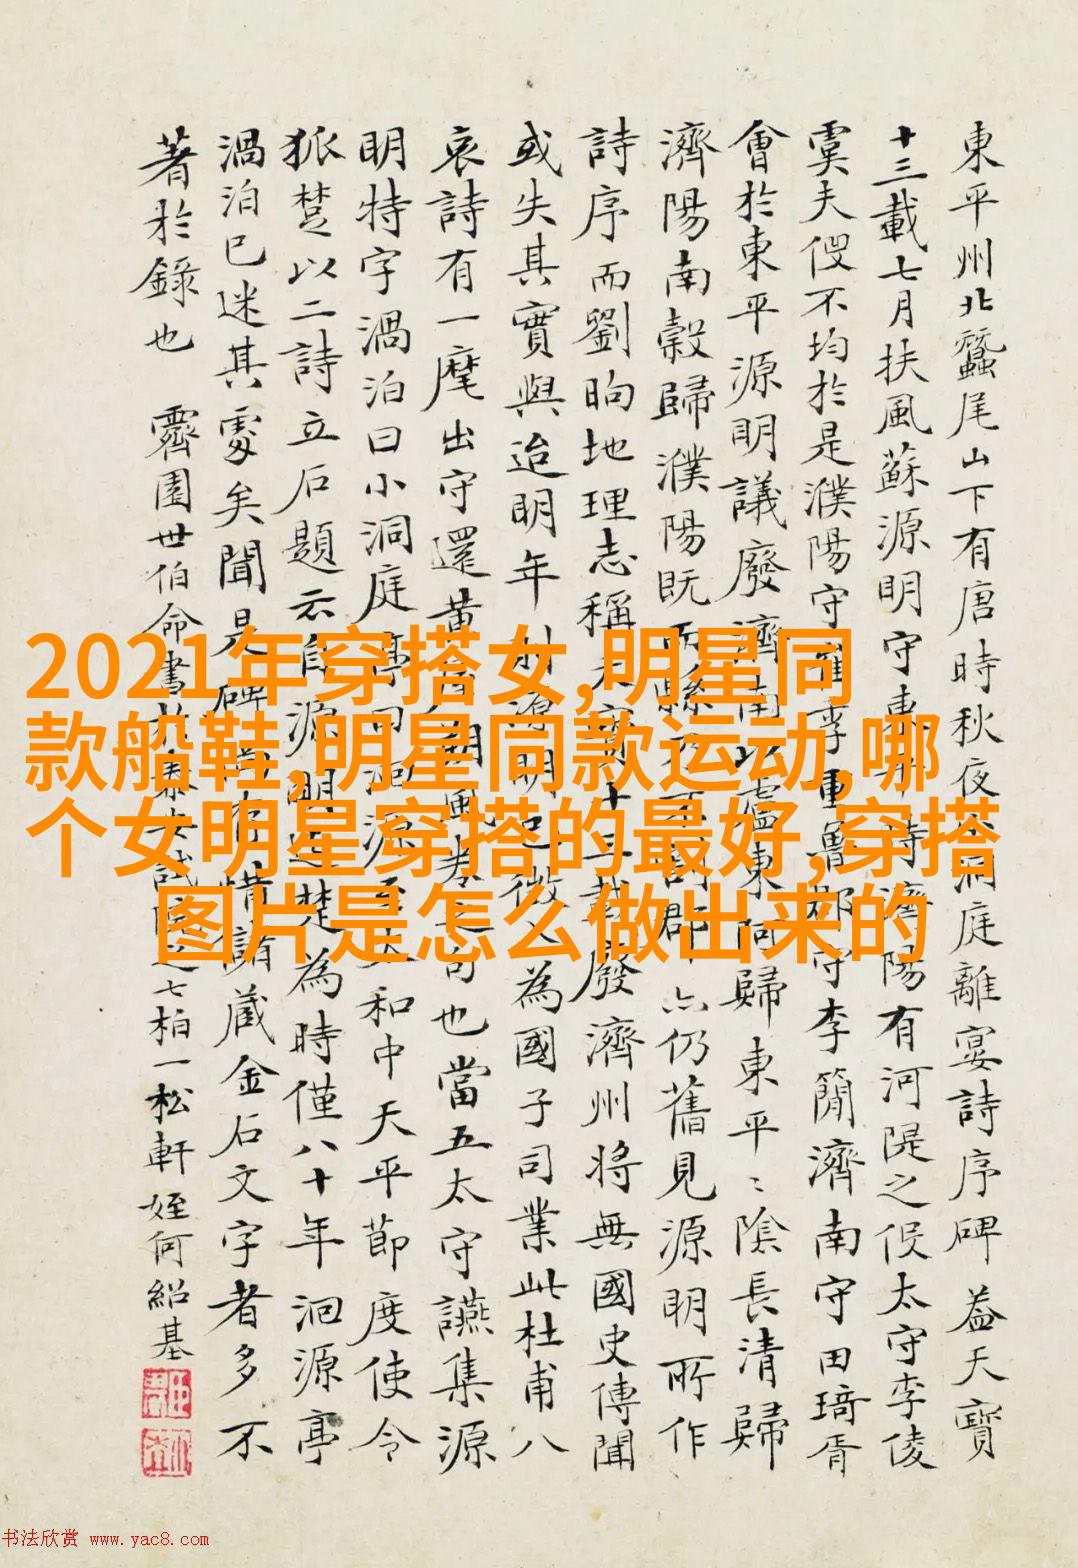 東平州北蠶尾山下有唐時秋夜洞庭離宴詩序碑 葢天寶
十三載七月扶風蘇源明守東時濟陽有河隄之伇太守李倰
虞夫伇不均於是濮陽守李重魯郡守李簡濟南守田琦胥
會於東平源明議廢濟南以盧東阿歸東平〻陰長清歸
濟陽南穀歸濮陽旣而郡亦仍舊見源明所作
詩序而劉昫地理志稱天十三載廢濟州將無國史傳聞
或失其實與迨明年明徵為國子司業此杜甫八
哀詩有一麾出守還黃司也當五太守讌集源
明特字渦泊曰小洞庭亭曰洄源大和中天平節度使令
狐楚以二詩立石題云自源明楚為時僅八十年洄源亭
渦泊已迷其處矣聞是碑惜諸蔵金石文字者多不
著於錄也 霽園世伯命書之七柏一松軒 姪何紹基
2021年穿搭女,明星同
款船鞋,明星同款运动,哪
个女明星穿搭的最好,穿搭
图片是怎么做出来的
书法欣赏 www.yac8.com